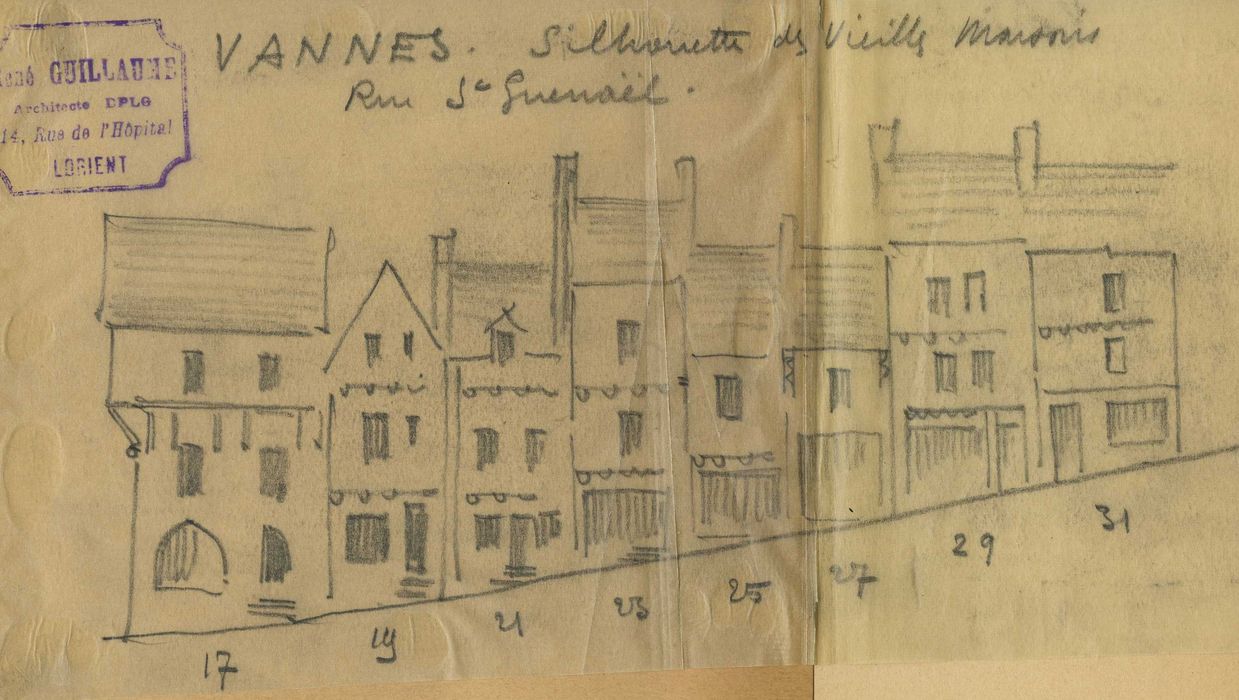 René GUILLAUME
Architecte DPLG
14, Rue de l'Hôpital
LORIENT
VANNES. Silhouette des Vieilles Maisons
Rue St Guenaël.
17
19
21
23
25
27
29
31